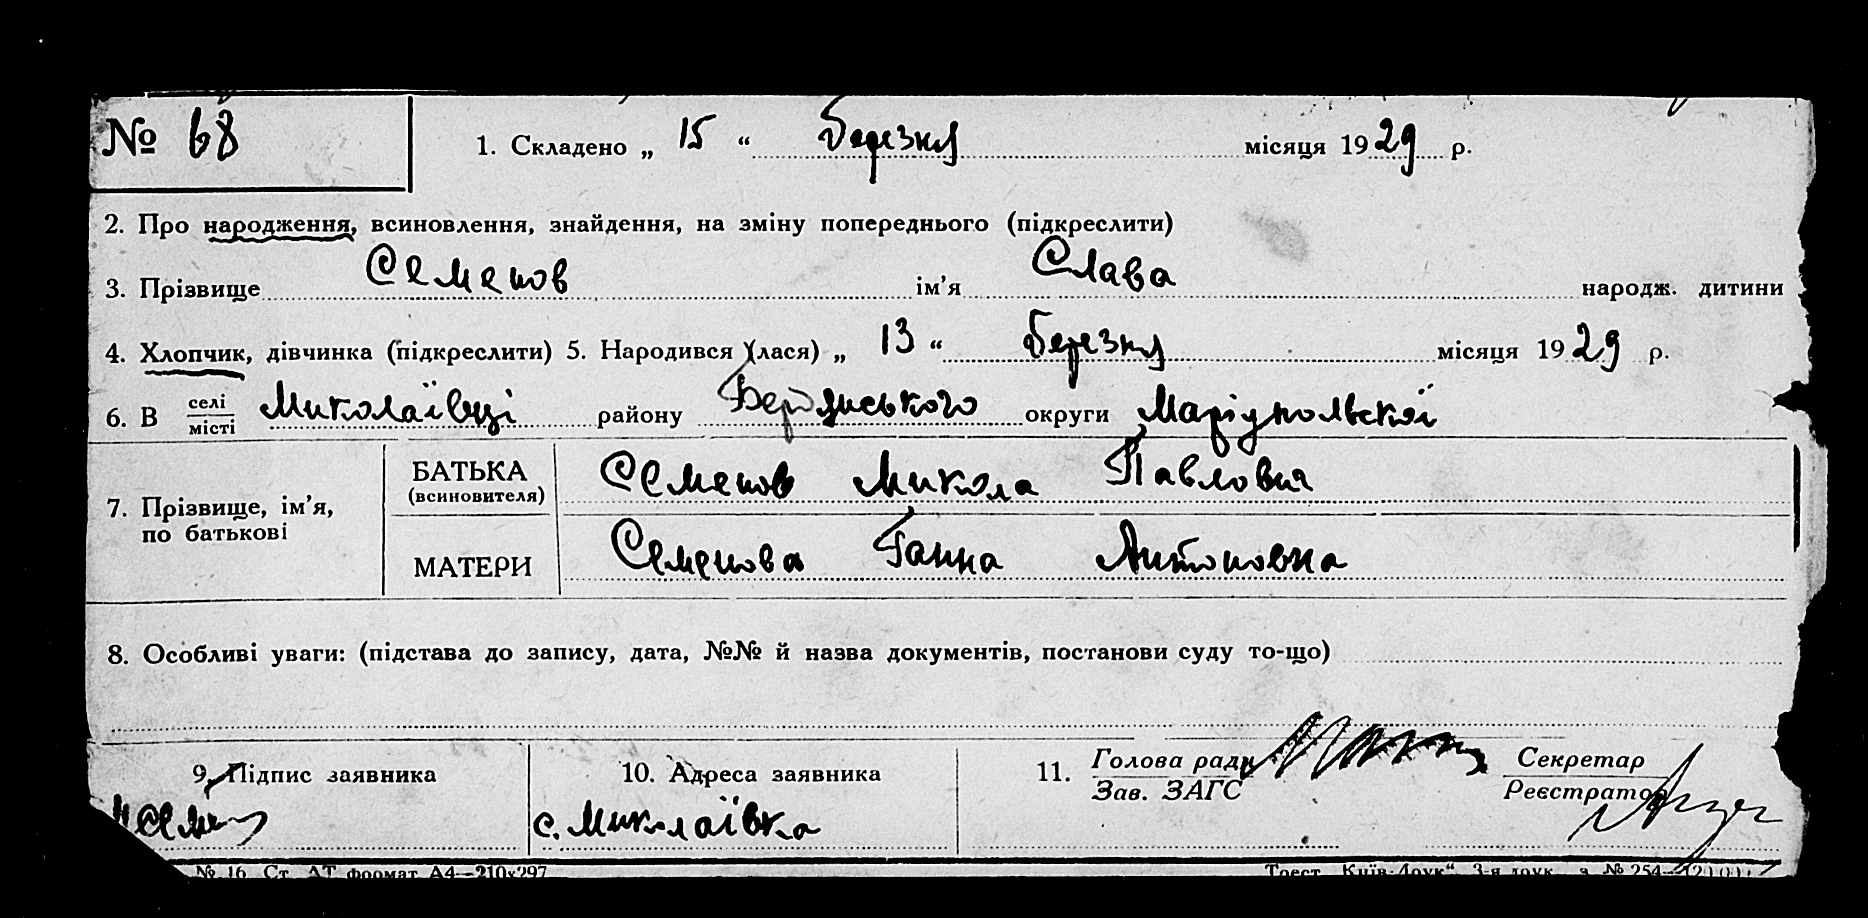 № 68
1. Складено „ 15 “ березня місяця 1929 р.
2. Про народження, всиновлення, знайдення, на зміну попереднього (підкреслити)
3. Прізвище Семенов ім’я Слава народж. дитини
4. Хлопчик, дівчинка (підкреслити) 5. Народився (лася) „ 13 “ березня місяця 1929 р.
6. В селі місті Миколаївці району Бердянського округи Маріупольскої
7. Прізвище, ім’я, по батькові
БАТЬКА (всиновителя) Семенов Микола Павлович
МАТЕРИ Семенова Ганна Антоновна
8. Особливі уваги: (підстава до запису, дата, №№ й назва документів, постанови суду то-що)
9. Підпис заявника
10. Адреса заявника
с. Миколаївка
11. Голова ради Зав. ЗАГС
Секретар Реєстратор
№ 16 Ст. АТ формат А4—210x297
Трест „Київ-Друк“ 3-я друк. з. № 254—